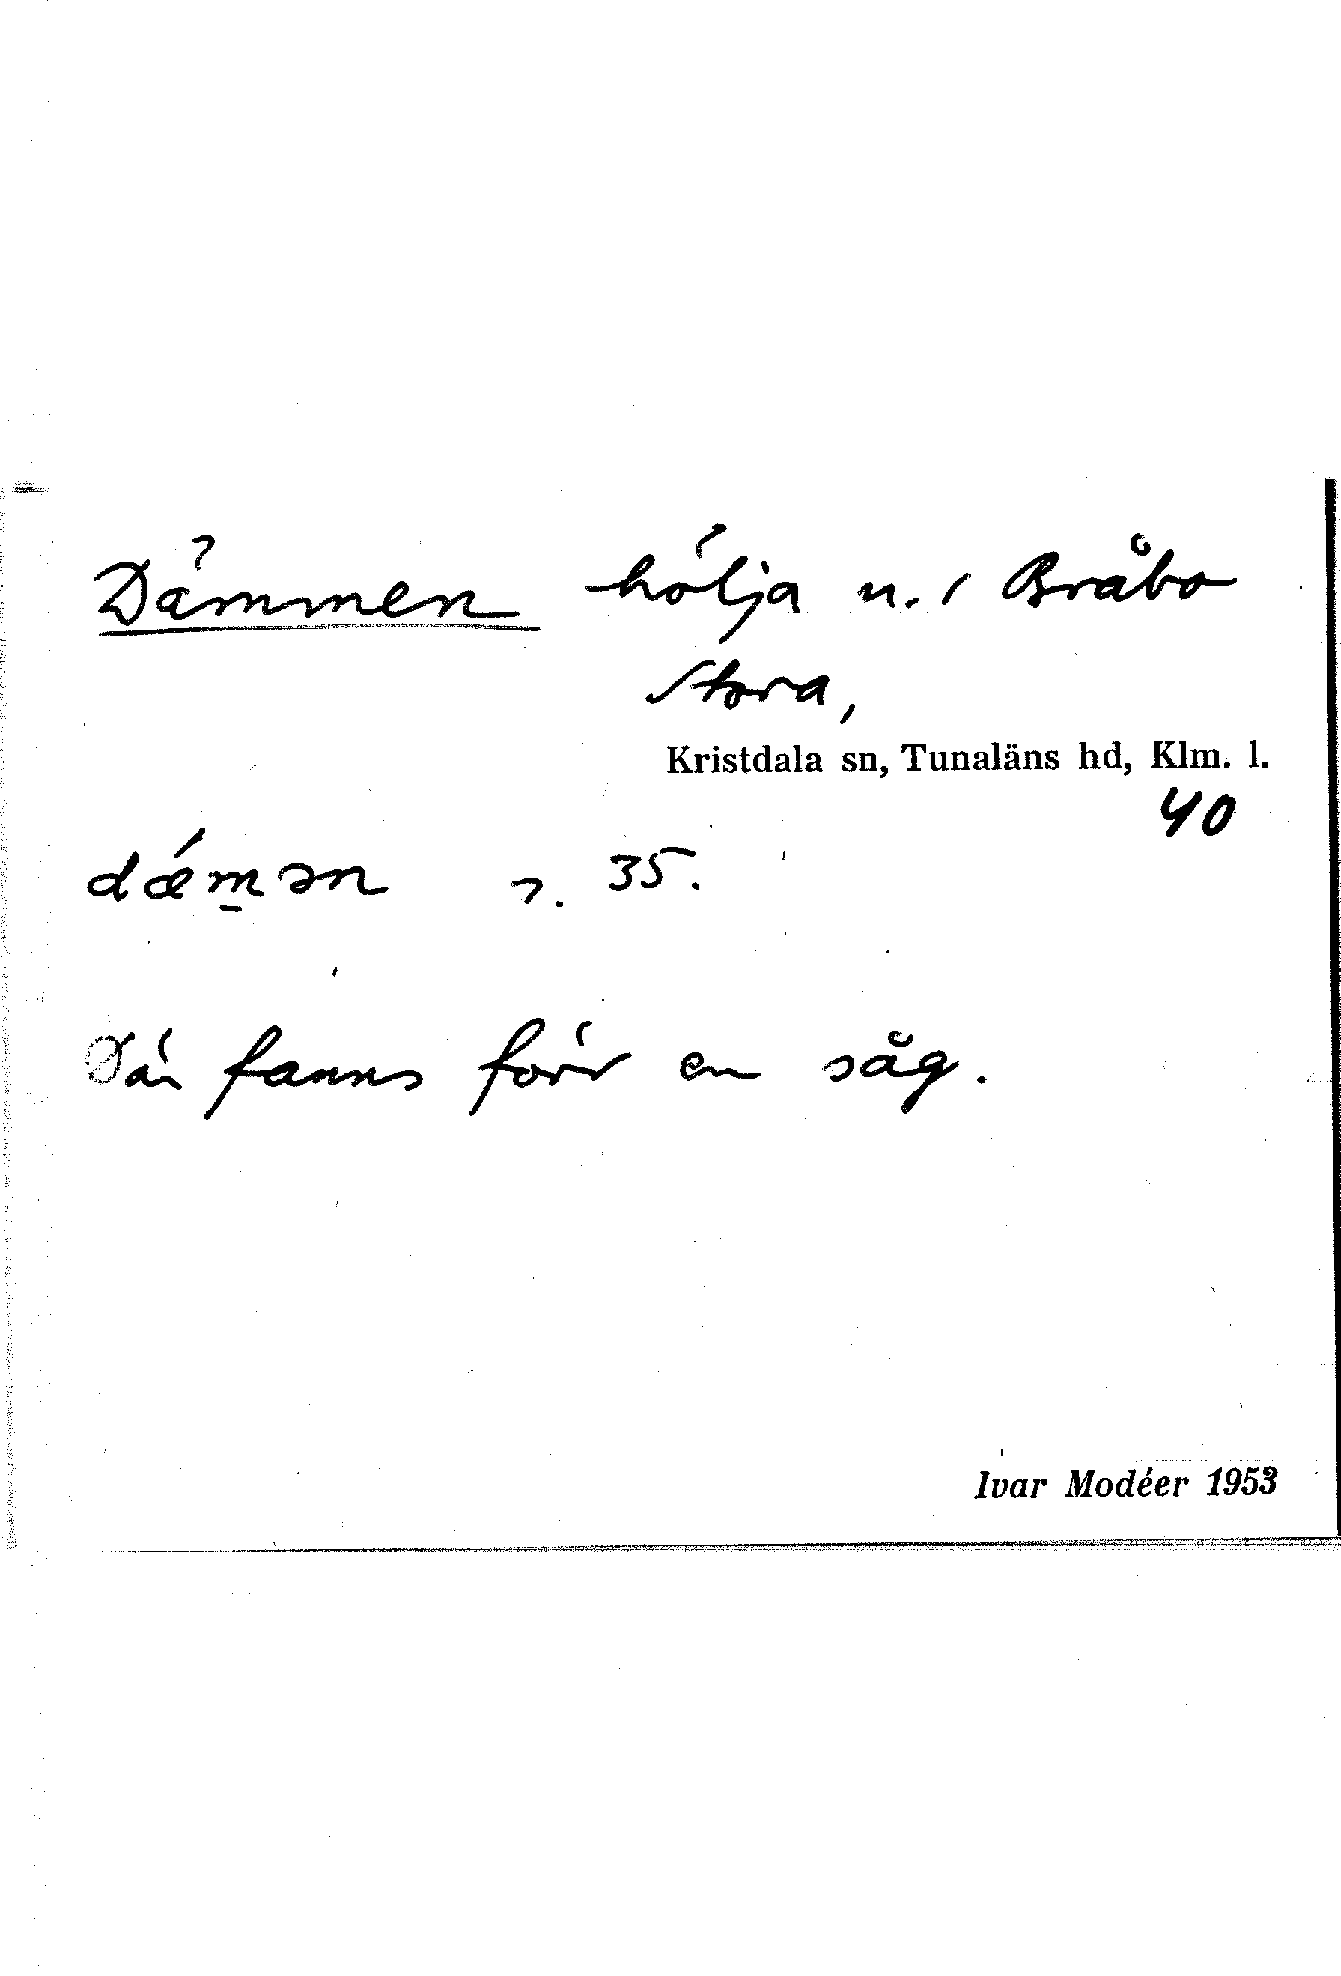 Dämmen hölja n. i Bråbo
Stora,
Kristdala sn, Tunaläns hd, Klm. l.
40
dǽm̲ən 35.
Där fanns förr en såg.
Ivar Modéer 1953